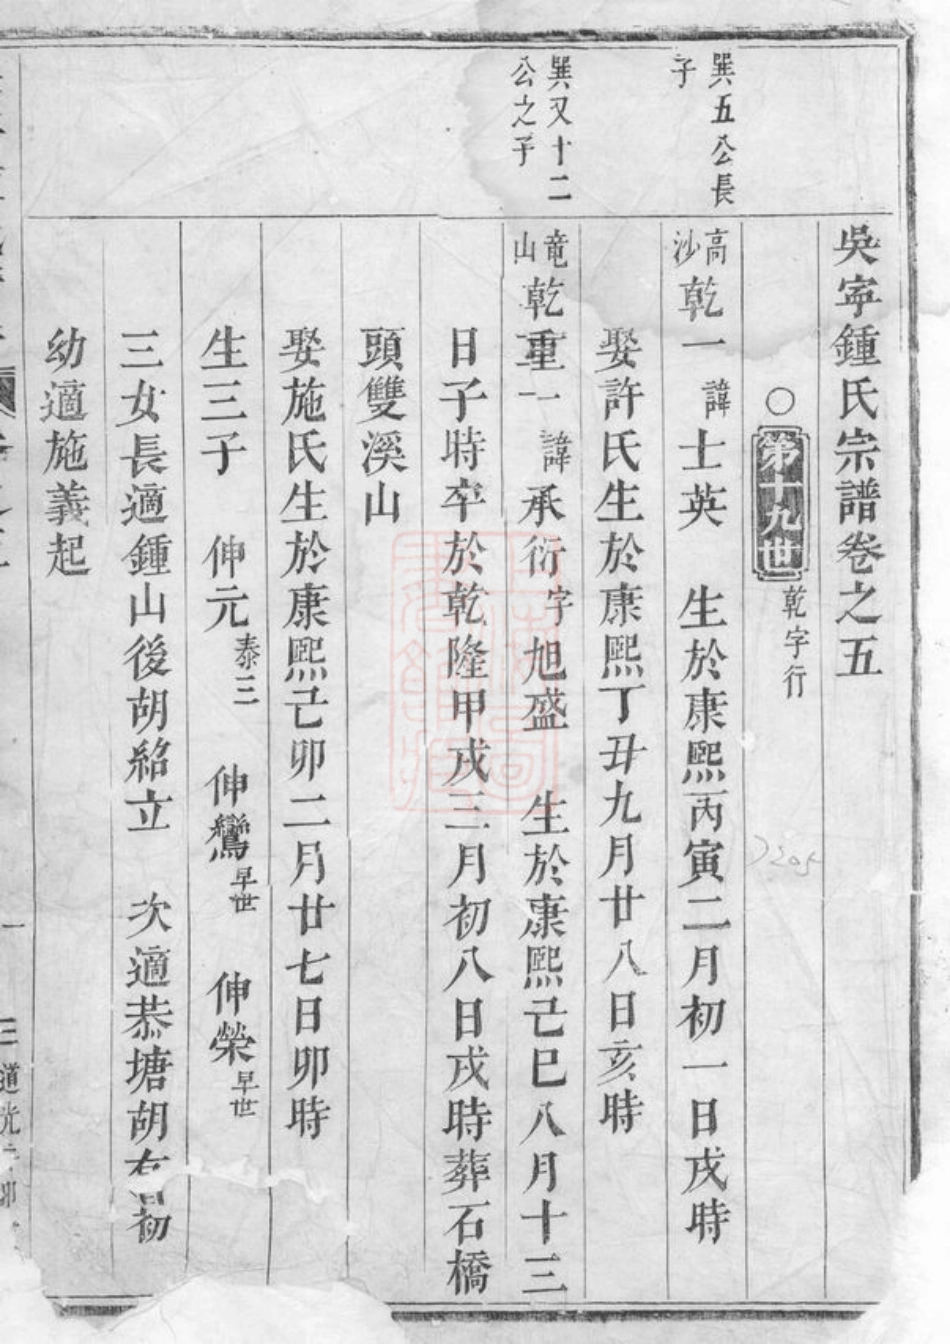 吳寧鍾氏宗譜卷之五
○第十九世 乾字行
巽五公長
子
高沙 乾一 諱士英 生於康熙丙寅二月初一日戌時
娶許氏生於康熙丁丑九月廿八日亥時
巽又十二
公之子
竜山 乾重一 諱承衍 字旭盛 生於康熙己巳八月十三
日子時卒於乾隆甲戌三月初八日戌時葬石橋
頭雙溪山
娶施氏生於康熙己卯二月廿七日卯時
生三子 伸元 泰三 伸鸞 早世 伸榮 早世
三女長適鍾山後胡紹立 次適恭塘胡
幼適施義起
道光